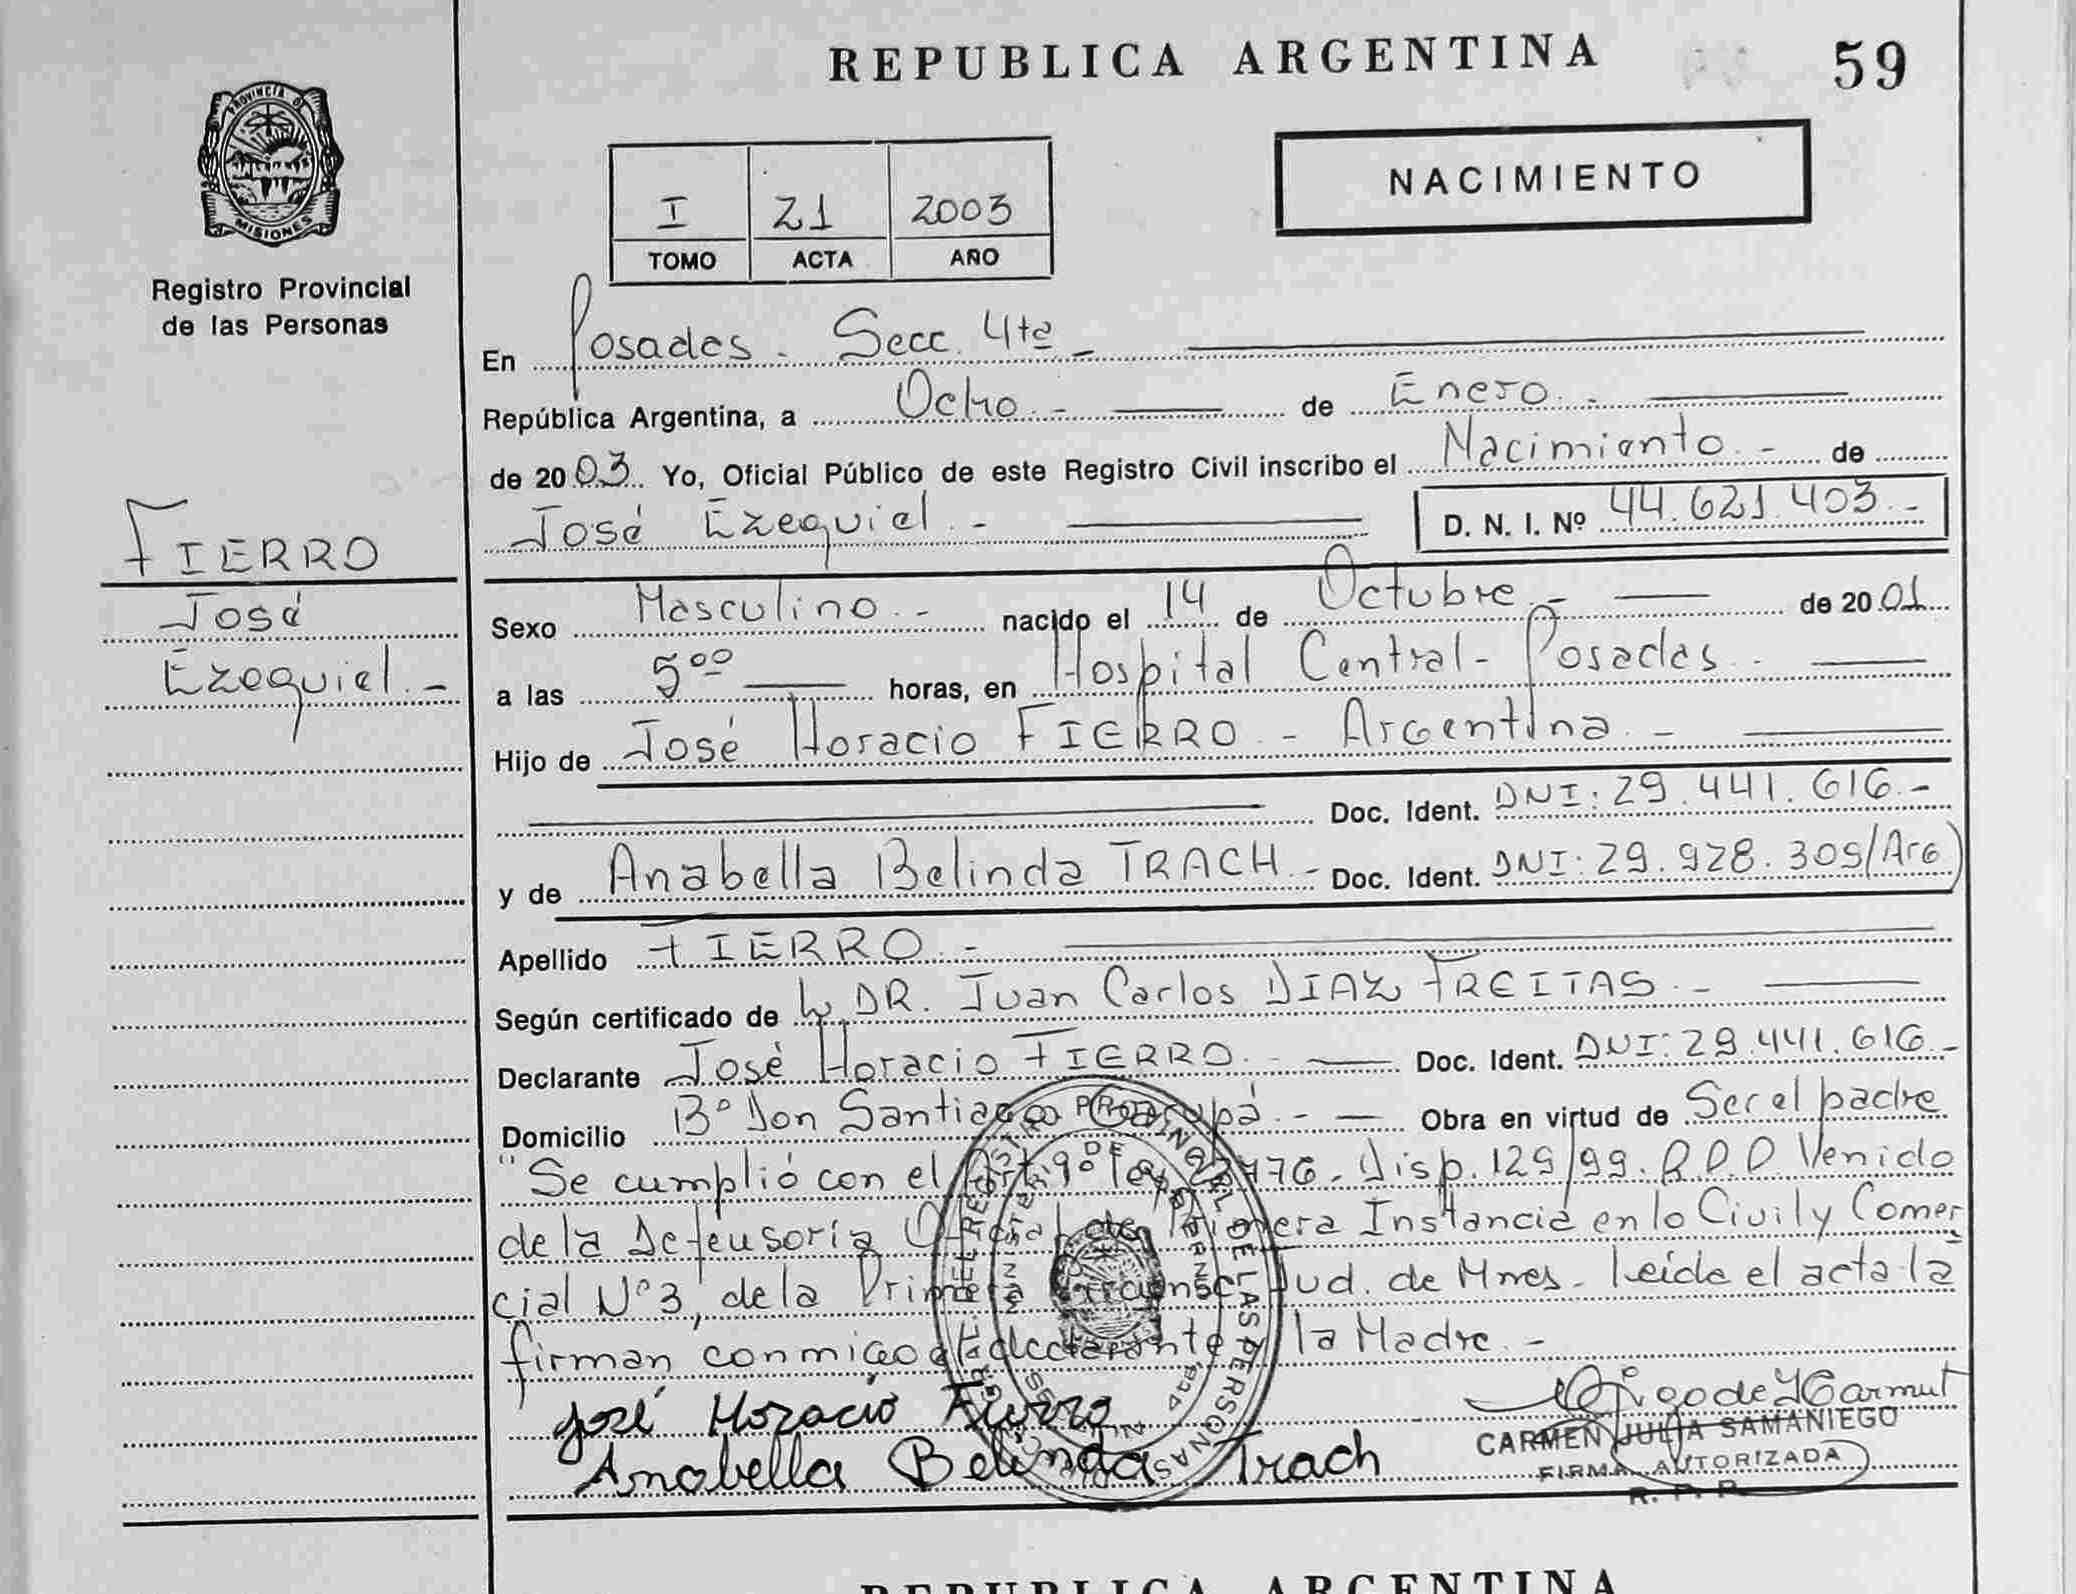 REPUBLICA ARGENTINA
59
PROVINCIA DE
MISIONES
Registro Provincial
de las Personas
I
21
2003
TOMO
ACTA
AÑO
NACIMIENTO
FIERRO
José
Ezequiel.-
En Posadas. Secc. 4ta -
República Argentina, a Ocho.- de Enero.-
de 2003. Yo, Oficial Público de este Registro Civil inscribo el Nacimiento.- de
José Ezequiel.- D. N. I. Nº 44.621.403.-
Sexo Masculino.- nacido el 14 de Octubre.- de 2001
a las 5⁰⁰ horas, en Hospital Central- Posadas.-
Hijo de José Horacio FIERRO.- Argentina.-
Doc. Ident. DNI: 29.441.616.-
y de Anabella Belinda TRACH.- Doc. Ident. DNI: 29.928.309/Arg)
Apellido FIERRO.-
Según certificado de L, DR. Juan Carlos DIAZ FREITAS.-
Declarante José Horacio FIERRO.- Doc. Ident. DNI: 29.441.616.-
Domicilio B° Don Santiago Garupá.- Obra en virtud de Ser el padre
"Se cumplió con el Art. 9° Ley 23776. Disp. 129/99. R.P.P Venido
de la Defensoría Oficial de Primera Instancia en lo Civil y Comer
cial N°3, de la Primera Circunsc. Jud. de Mnes. Leída el acta la
firman conmigo el declarante y la Madre.-
José Horacio Fierro
Anabella Belinda Trach
CARMEN JULIA SAMANIEGO
FIRMA AUTORIZADA
R. P. P.
REPUBLICA ARGENTINA